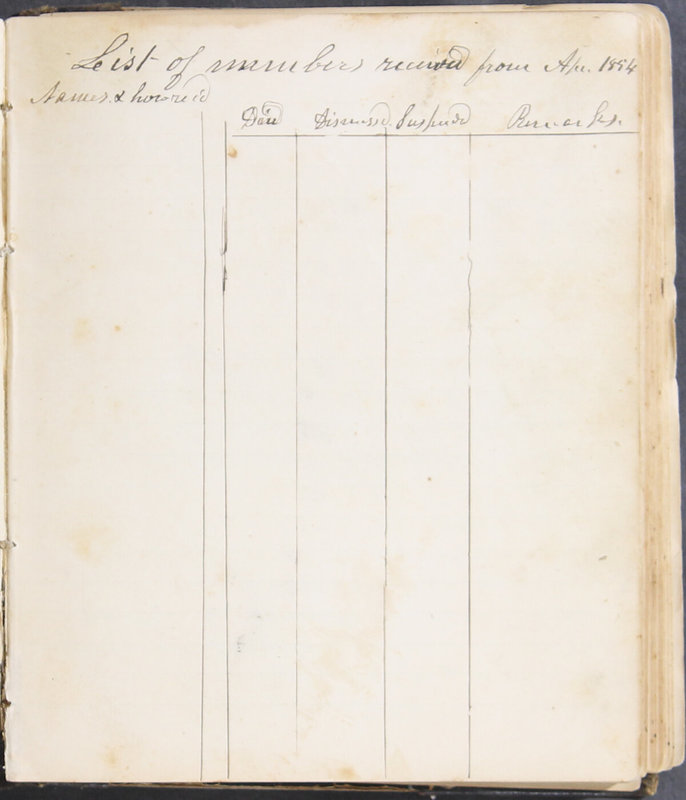 List of members received from Apr. 1884
Names & how rec'd
Died Dismissed Suspend Remarks.